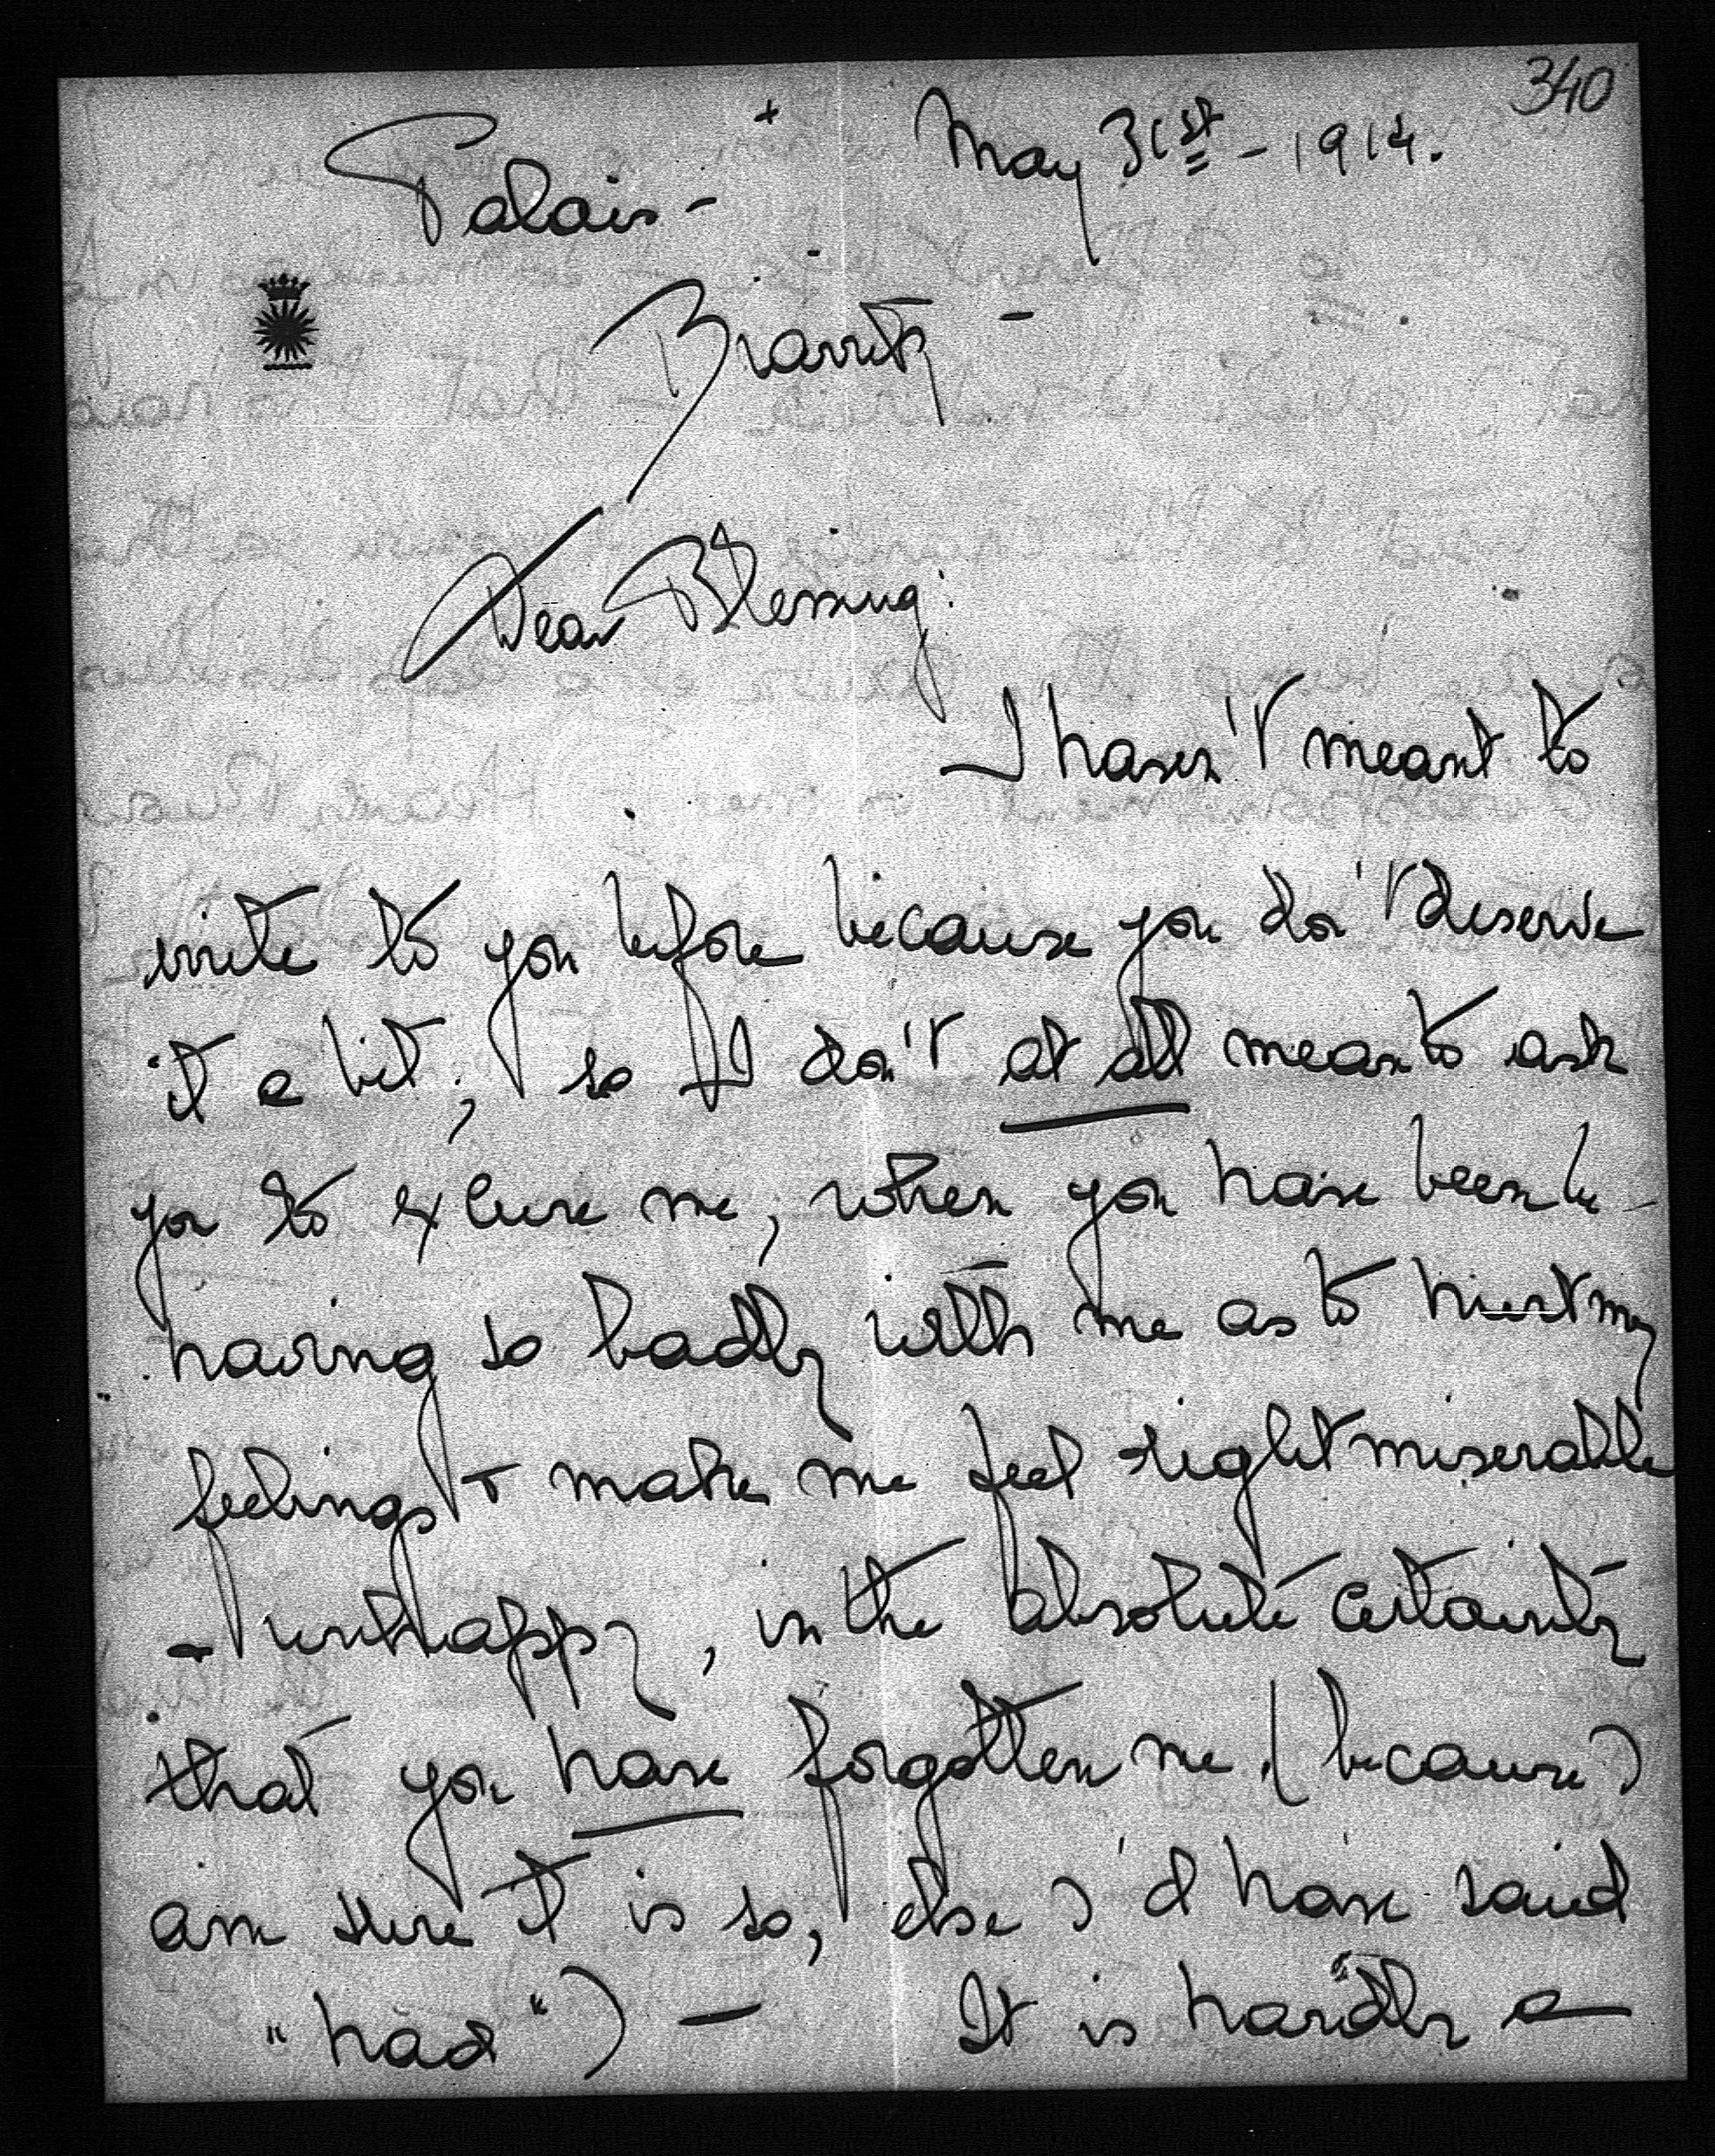 340
May 31st - 1914.
Palais -
Biarritz -
Dear Blessing:
I haven't meant to
write to you before because you don't deserve
it a bit; so I don't at all mean to ask
you to excuse me, when you have been be-
having so badly with me as to hurt my
feelings & make me feel right miserable
- unhappy, in the absolute certainty
that you have forgotten me (because I
am sure it is so, else I'd have said
"had") - It is hardly a